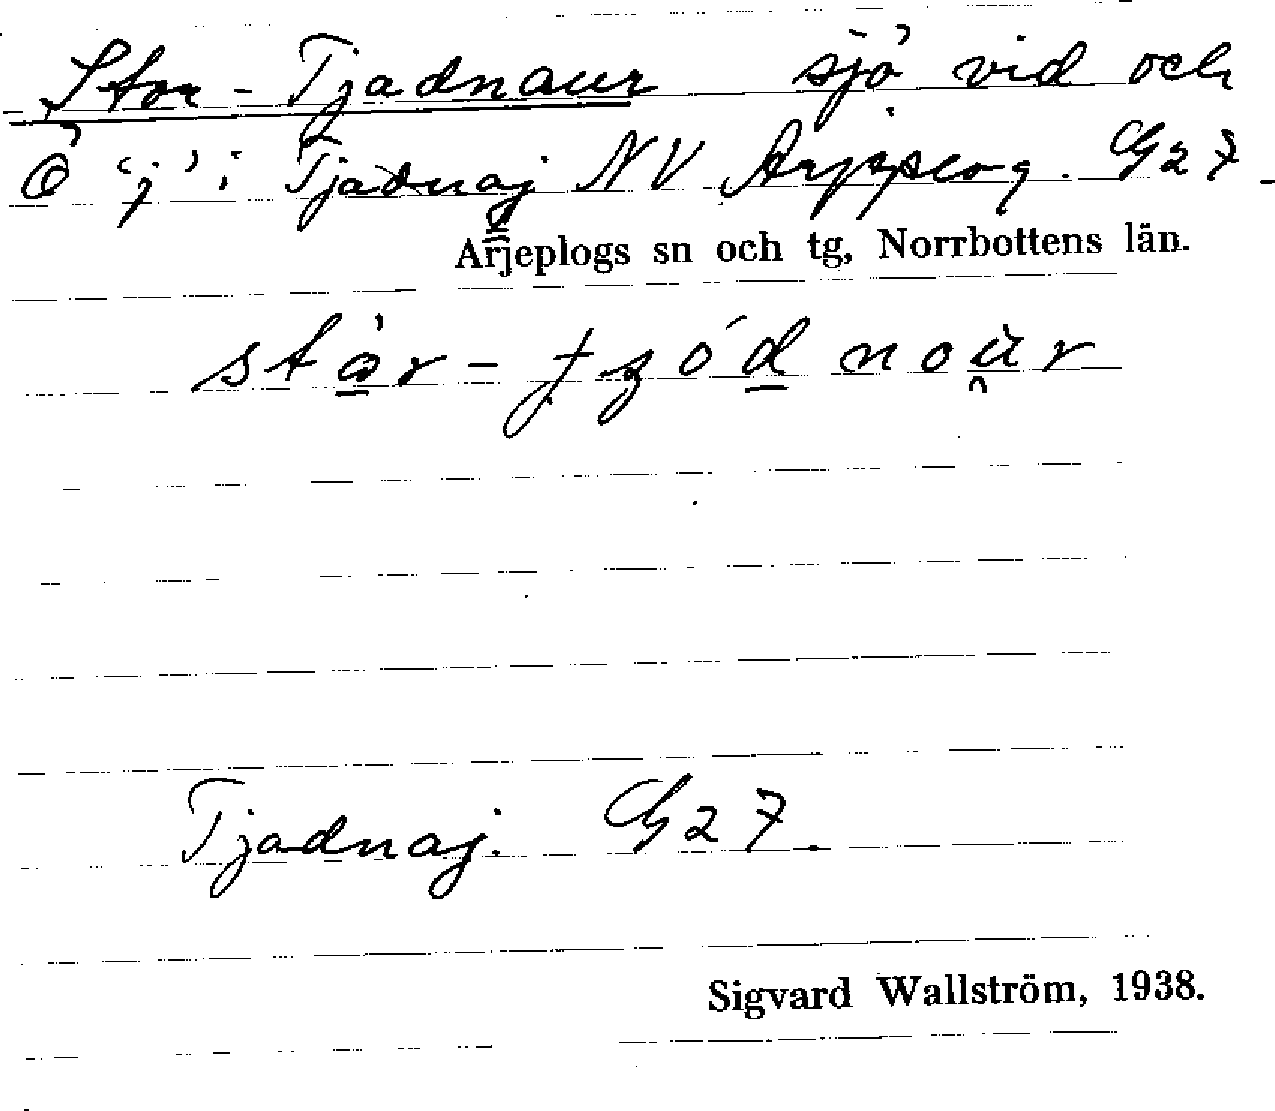 Stor-Tjadnaur sjö vid och
Ö 'j' i Tjadnaj NV Arjeplog. G27.
Arjeplogs sn och tg, Norrbottens län.
Tjadnaj. G27.
Sigvard Wallström, 1938.